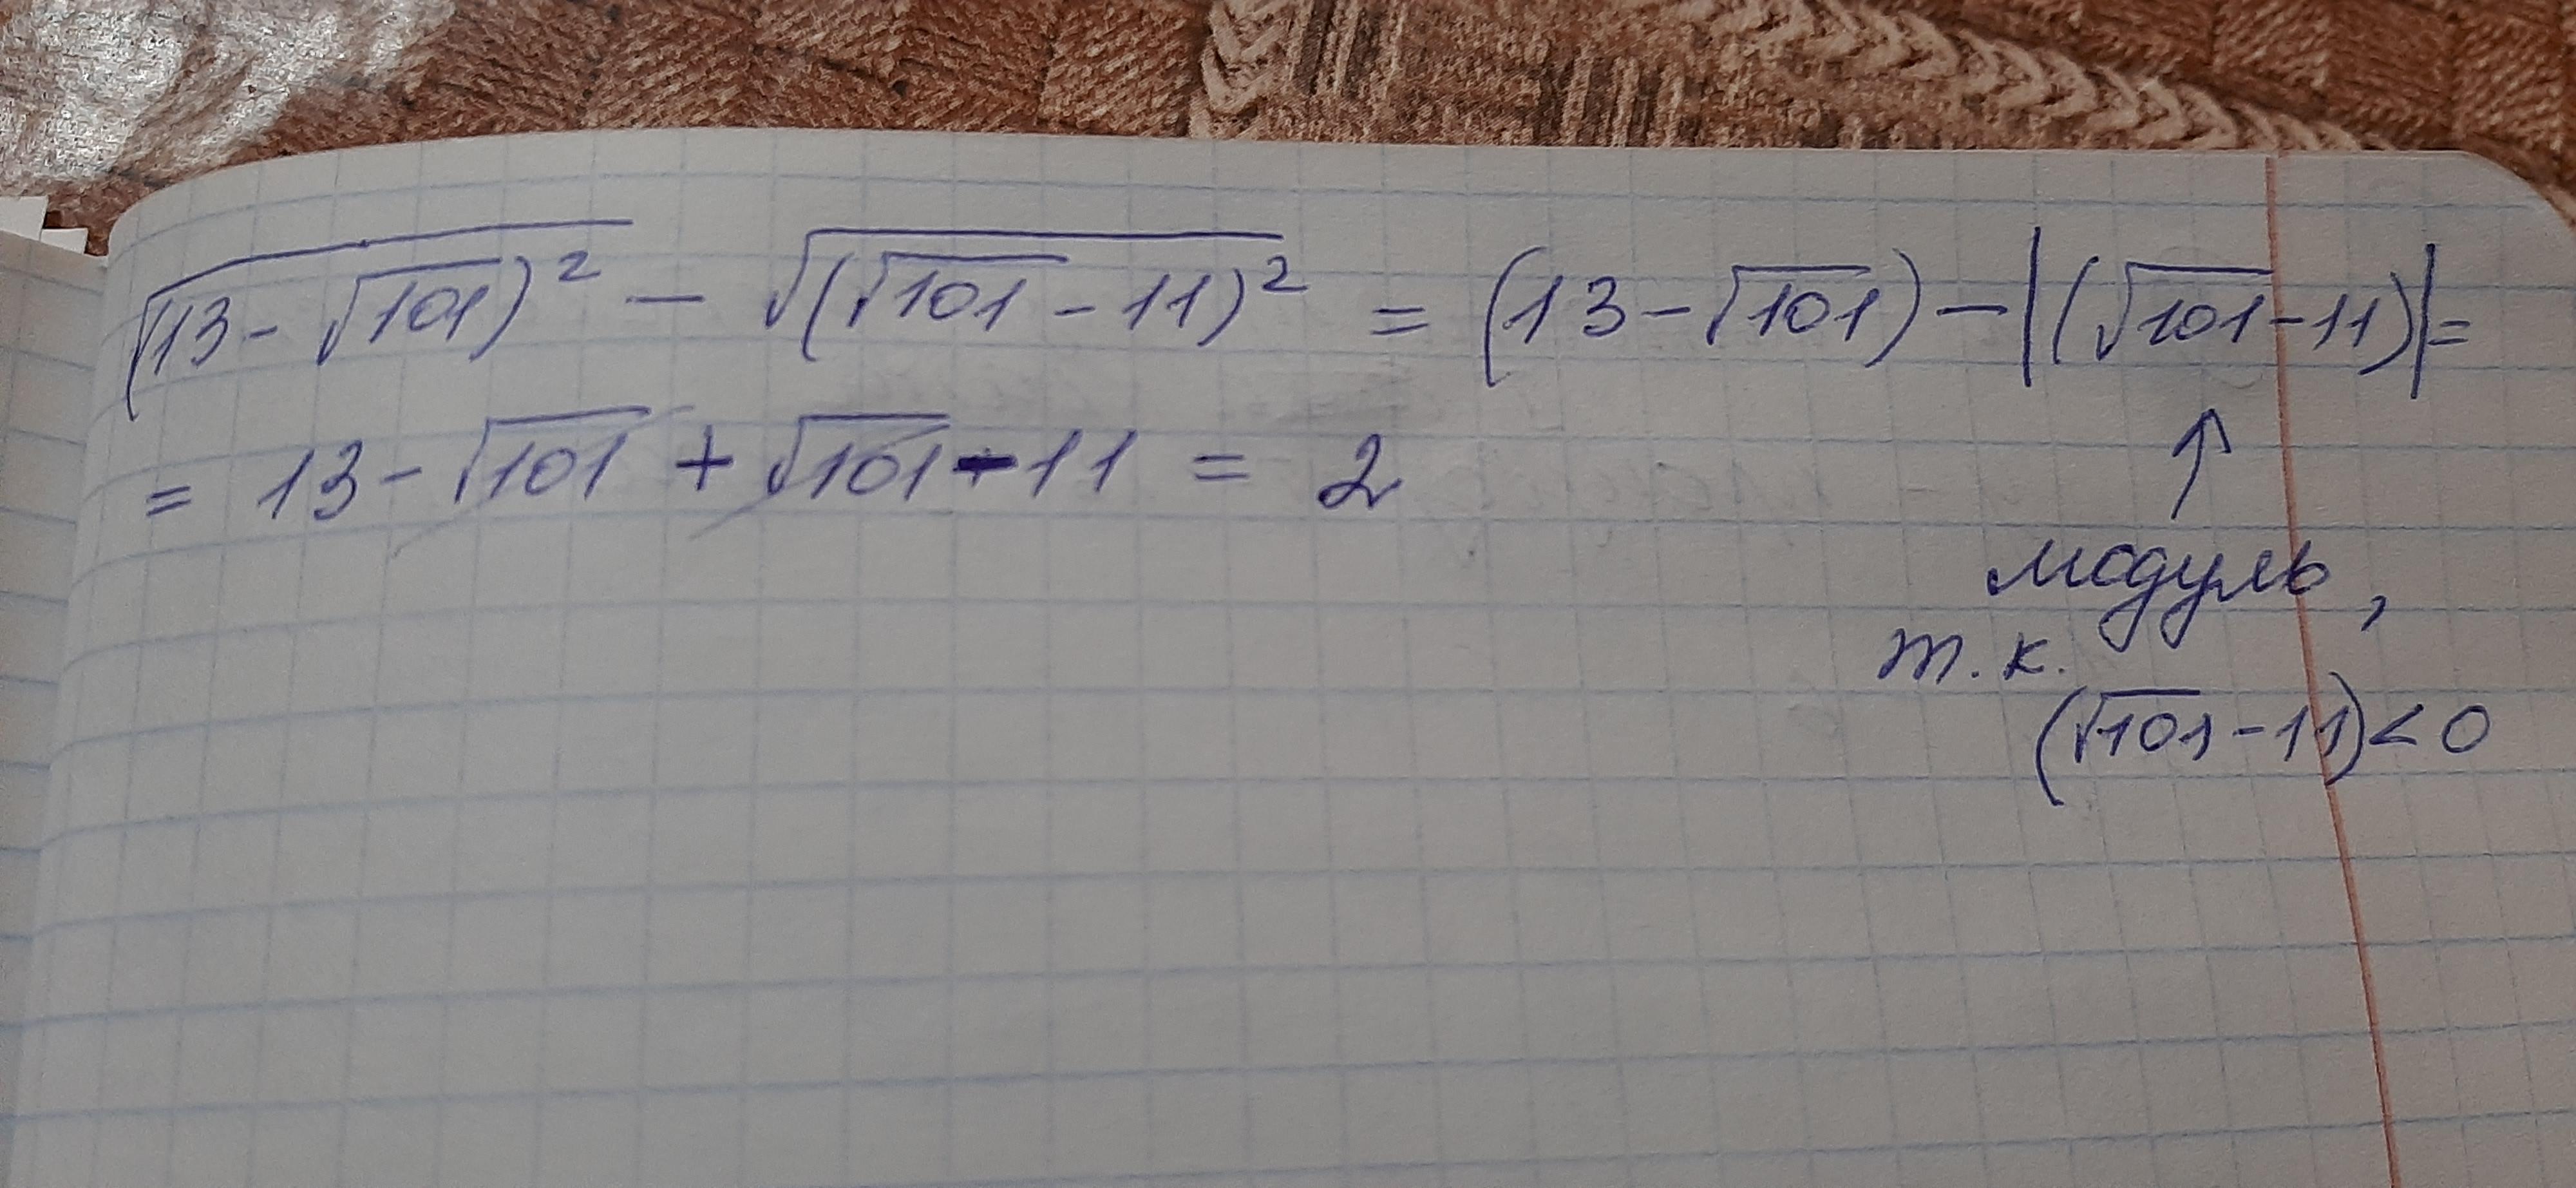 √(13-√101)² - √(√101-11)² = (13-√101)-|(√101-11)|=
= 13-√101 + √101-11 = 2
↑
модуль,
т.к.
(√101-11)<0